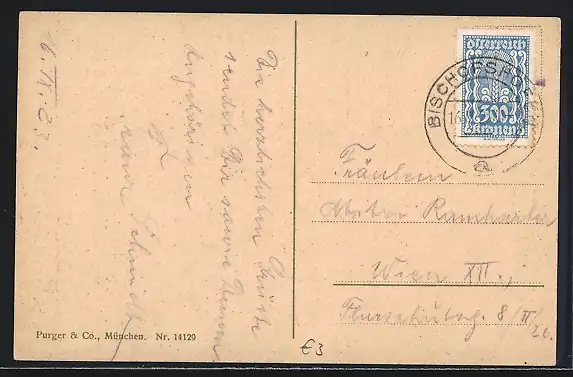 16. IX. 23.
Die herzlichsten Grüße
sendet Dir samt Deinen
Angehörigen
Schmidt
Purger & Co., München. Nr. 14129
österreich
300
kronen
BISCHOFSHOFEN
16.
a
Fräulein
Wien XII.,
8/II/26.
€3